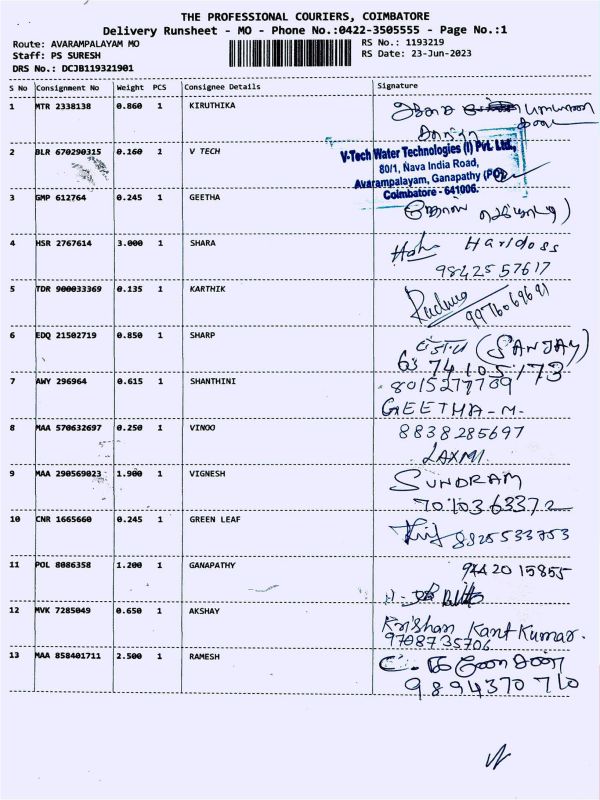 THE PROFESSIONAL COURIERS, COIMBATORE
Delivery Runsheet - MO - Phone No.:0422-3505555 - Page No.:1
Route: AVARAMPALAYAM MO
RS No.: 1193219
Staff: PS SURESH
RS Date: 23-Jun-2023
DRS No.: DCJB119321901
S No Consignment No Weight PCS Consignee Details Signature
1 MTR 2338138 0.860 1 KIRUTHIKA
2 BLR 670290315 0.160 1 V TECH
V-Tech Water Technologies (I) Pvt. Ltd.,
80/1, Nava India Road,
Avarampalayam, Ganapathy (PO)
Coimbatore - 641006.
3 GMP 612764 0.245 1 GEETHA
4 HSR 2767614 3.000 1 SHARA
Haridoss
98425 57617
5 TDR 900033369 0.135 1 KARTHIK
9976069691
6 EDQ 21502719 0.850 1 SHARP
(SANJAY)
63 74105173
7 AWY 296964 0.615 1 SHANTHINI
8015277709
GEETHA-M.
8 MAA 570632697 0.250 1 VINOO
8838285697
LAXMI
9 MAA 290569023 1.900 1 VIGNESH
SUNDRAM
7010363372
10 CNR 1665660 0.245 1 GREEN LEAF
8825533753
11 POL 8086358 1.200 1 GANAPATHY
9442015855
12 MVK 7285049 0.650 1 AKSHAY
Krishan Kant Kumar.
9708735706
13 MAA 858401711 2.500 1 RAMESH
9894370710